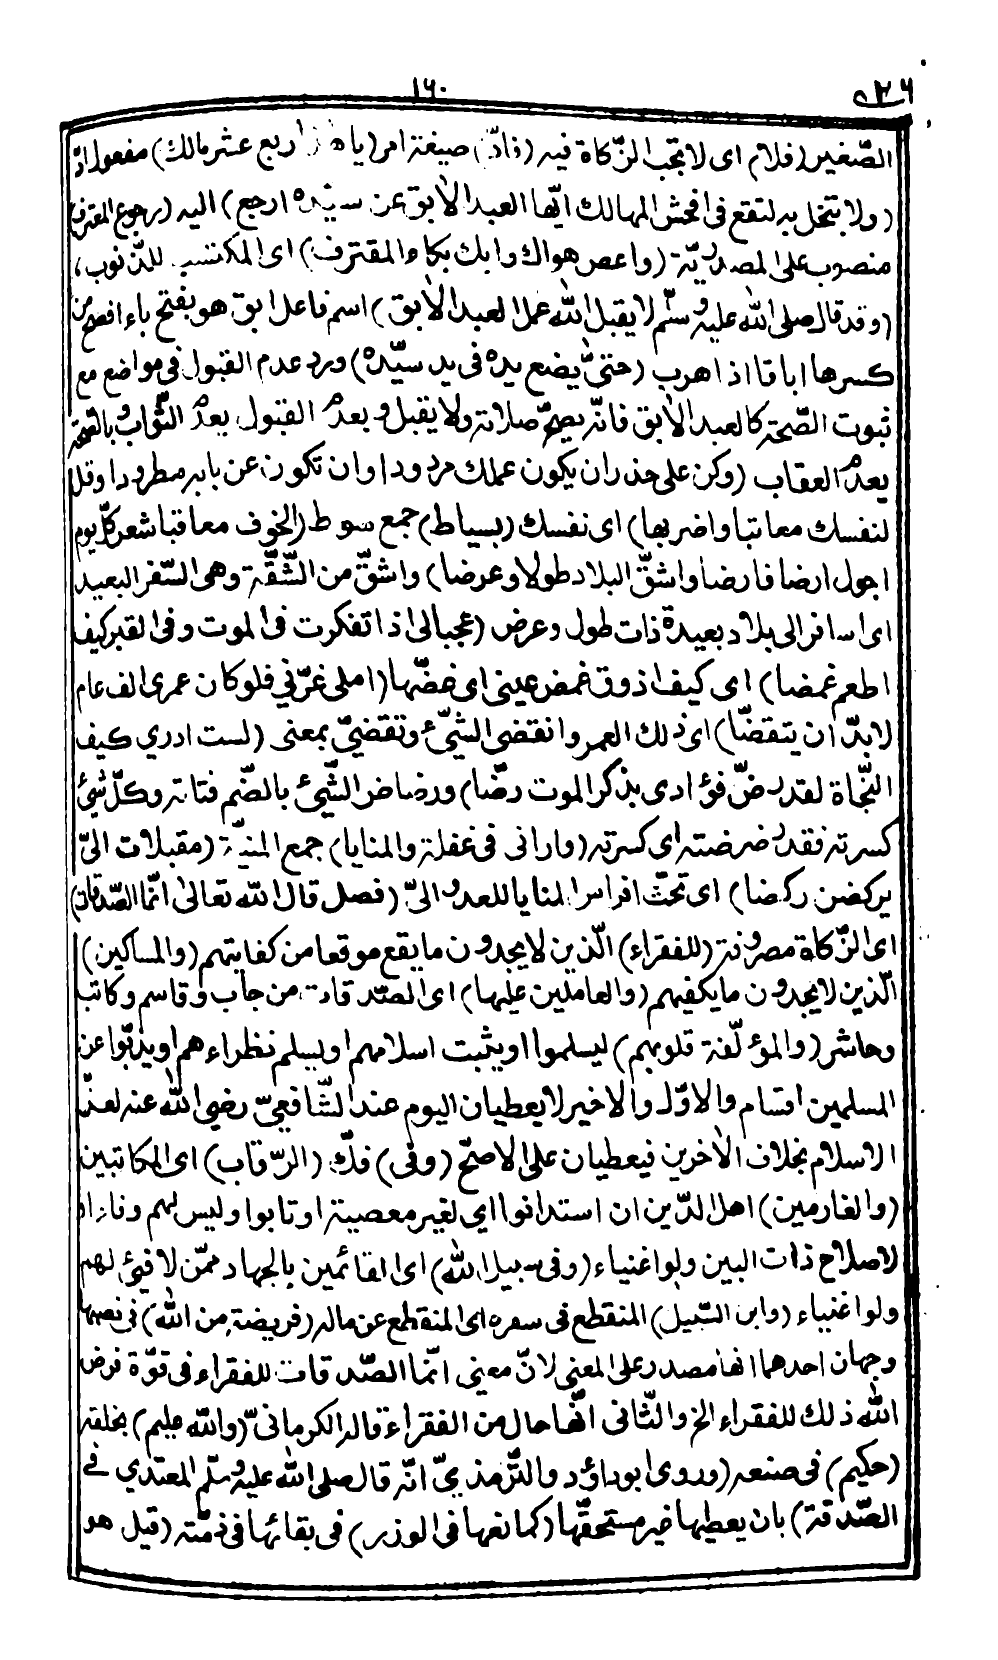 ١٦٠
الصّغير (فلا) اى لا تجب الزّكاة فيه (فادّ) صيغة امر (يا هذا ربع عشر مالك) مفعول ادّ
(ولا تبخل به لتقع فى افحش المهالك ايّها العبد الاٰبق عن سيّده ارجع) اليه (رجوع المعترف)
منصوب على المصدريّة (واعص هواك وابك بكاء المقترف) اى المكتسب للذّنوب،
(وقد قال صلى اللّٰه عليه وسلّم لا يقبل اللّٰه عمل العبد الاٰبق) اسم فاعل ابق هو بفتح باء افصح من
كسرها اباقا اذا هرب (حتىّ يضع يده فى يد سيّده) ورد عدم القبول فى مواضع مع
ثبوت الصّحة كالعبد الاٰبق فانّه يصحّ صلاته ولا يقبل و بعدم القبول يعدم الثّواب و بالصّحة
يعدم العقاب (وكن على حذر ان يكون عملك مردودا وان تكون عن بابه مطرودا وقل
لنفسك معاتبا واضربها) اى نفسك (بسياط) جمع سوط (الخوف معاقبا شعر كلّ يوم
اجول ارضا فارضا واشقّ البلاد طولا وعرضا) واشقّ من الشّقّة وهى السّفر البعيد
اى اسافر الى بلاد بعيدة ذات طول وعرض (عجبا لى اذا تفكرت فى الموت وفى القبر كيف
اطعم غمضا) اى كيف اذوق غمض عينى اى غضّها (املى غرّني فلو كان عمرى الف عام
لا بدّ ان يتقضّا) اى ذلك العمر وانقضى الشّئ وتقضّي بمعنى (لست ادري كيف
النّجاة لقد رضّ فؤادى بذكر الموت رضّا) ورضاض الشّئ بالضّم فتاته وكلّ شئ
كسرته فقد رضرضته اى كسرته (وارانى فى غفلة والمنايا) جمع المنيّة (مقبلات الىّ
يركضن ركضا) اى تحثّ افراس المنايا للعدو الىّ (فصل قال اللّٰه تعالى انّما الصّدقات)
اى الزّكاة مصروفة (للفقراء) الّذين لا يجدون ما يقع موقعا من كفايتهم (والمساكين)
الّذين لا يجدون ما يكفيهم (والعاملين عليها) اى الصّدقات من جاب وقاسم وكاتب
وحاشر (والمؤلّفة قلوبهم) ليسلموا او يثبت اسلامهم او يسلم نظراءهم او يذبّوا عن
المسلمين اقسام والاوّل والاخير لا يعطيان اليوم عند الشّافعيّ رضى اللّٰه عنه لعزّ
الاسلام بخلاف الاٰخرين فيعطيان على الاصحّ (وفى) فكّ (الرّقاب) اى المكاتبين
(والغارمين) اهل الدّين ان استدانوا اي لغير معصية او تابوا وليس لهم وفاء او
لاصلاح ذات البين ولو اغنياء (وفى سبيل اللّٰه) اى القائمين بالجهاد ممّن لا فيئ لهم
ولو اغنياء (وابن السّبيل) المنقطع فى سفره اى المنقطع عن ماله (فريضة من اللّٰه) فى نصبها
وجهان احدهما انها مصدر على المعنى لانّ معنى انّما الصّدقات للفقراء فى قوّة فرض
اللّٰه ذلك للفقراء الخ والثّانى انّها حال من الفقراء قاله الكرمانىّ (واللّٰه عليم) بخلقه
(حكيم) فى صنعه (وروى ابو داؤد والتّرمذيّ انّه قال صلى اللّٰه عليه وسلّم المعتدي فى
الصّدقة) بان يعطيها غير مستحقّها (كمانعها فى الوزر) فى بقائها فى ذمّته (قيل هو